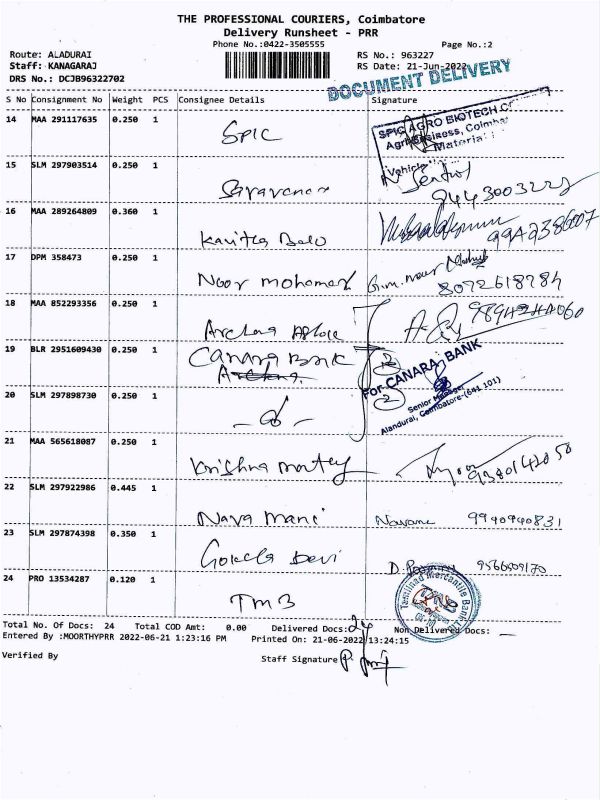 THE PROFESSIONAL COURIERS, Coimbatore
Delivery Runsheet - PRR
Phone No.:0422-3505555 Page No.:2
Route: ALADURAI RS No.: 963227
Staff: KANAGARAJ RS Date: 21-Jun-2022
DRS No.: DCJB96322702
DOCUMENT DELIVERY
S No Consignment No Weight PCS Consignee Details Signature
14 MAA 291117635 0.250 1 SPIC
SPIC AGRO BIOTECH
Agri Business, Coimbat
Materia
Vehicle
15 SLM 297903514 0.250 1 Saravanan
9443003222
16 MAA 289264809 0.360 1 Kavitha Balu
17 DPM 358473 0.250 1 Noor mohomed
8072618784
18 MAA 852293356 0.250 1 Archna
19 BLR 2951609430 0.250 1 CANARA BANK
For CANARA BANK
Senior Manager
Alandurai, Coimbatore-(641 101)
20 SLM 297898730 0.250 1 - do -
21 MAA 565618087 0.250 1 Krishna
22 SLM 297922986 0.445 1 Nava mani 9940940831
23 SLM 297874398 0.350 1 Devi
24 PRO 13534287 0.120 1 TMB
Tamilnad Mercantile Bank Ltd
Total No. Of Docs: 24 Total COD Amt: 0.00 Delivered Docs: 24 Non Delivered Docs: —
Entered By :MOORTHYPRR 2022-06-21 1:23:16 PM Printed On: 21-06-2022 13:24:15
Verified By Staff Signature